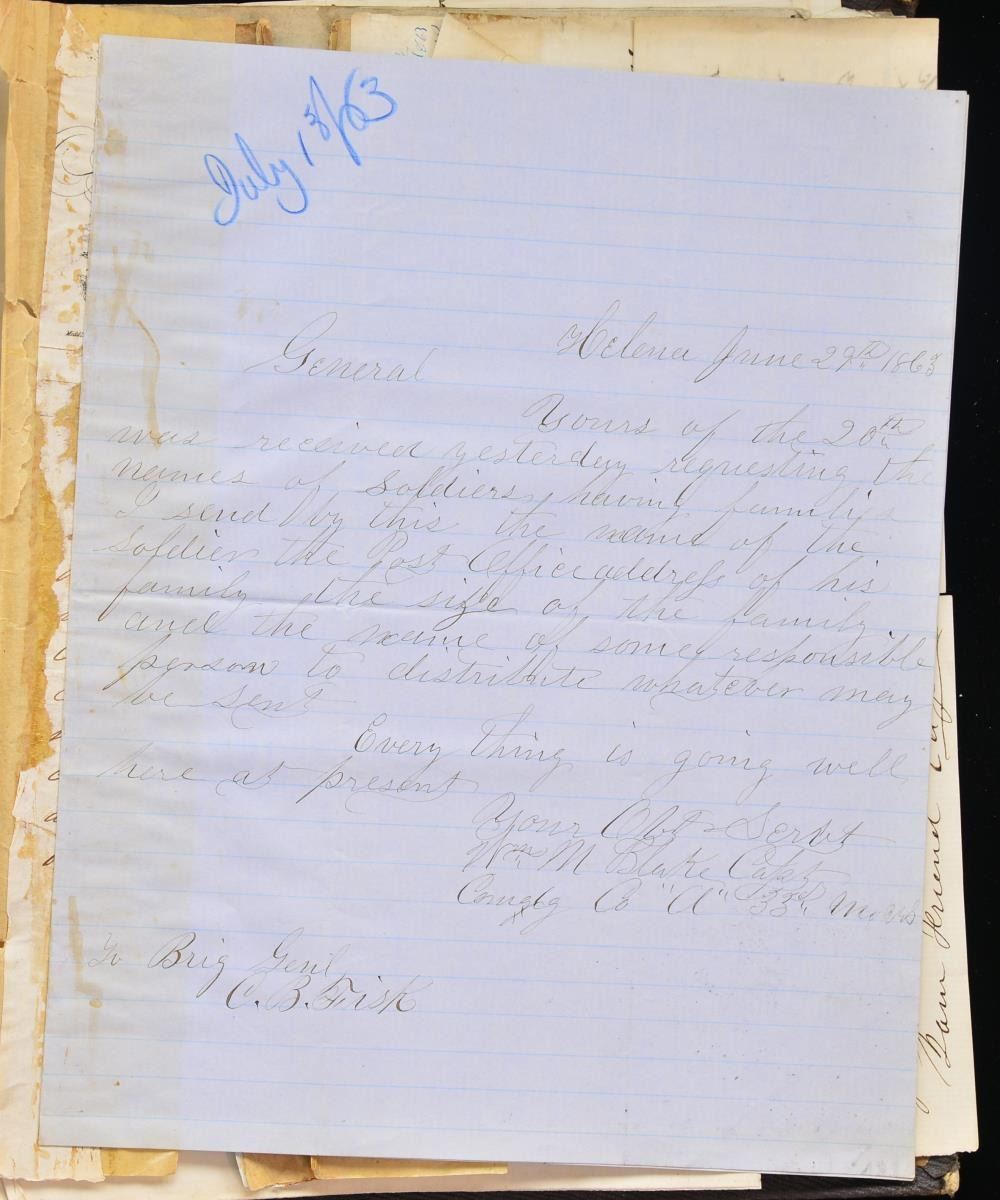 July 13/63
Helena June 29th 1863
General
Yours of the 20th
was received yesterday requesting the
names of Soldiers having families
I send by this the name of the
soldier the Post Office address of his
family the size of the family
and the name of some responsible
person to distribute whatever may
be sent
Every thing is going well
here at present
Your Obt Servt
Wm M Blake Capt
Comdg Co "A" 33rd Mo Vols
To Brig Genl
C. B. Fisk